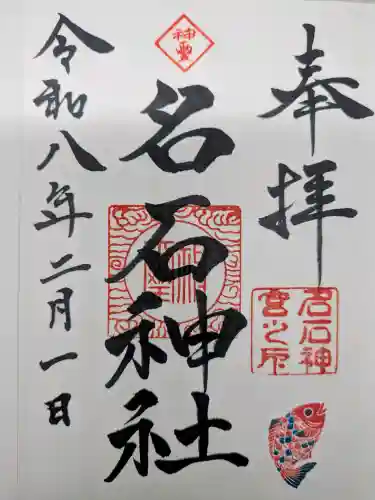 奉拝
神霊
名石神社
名石神
宮之印
令和八年二月一日